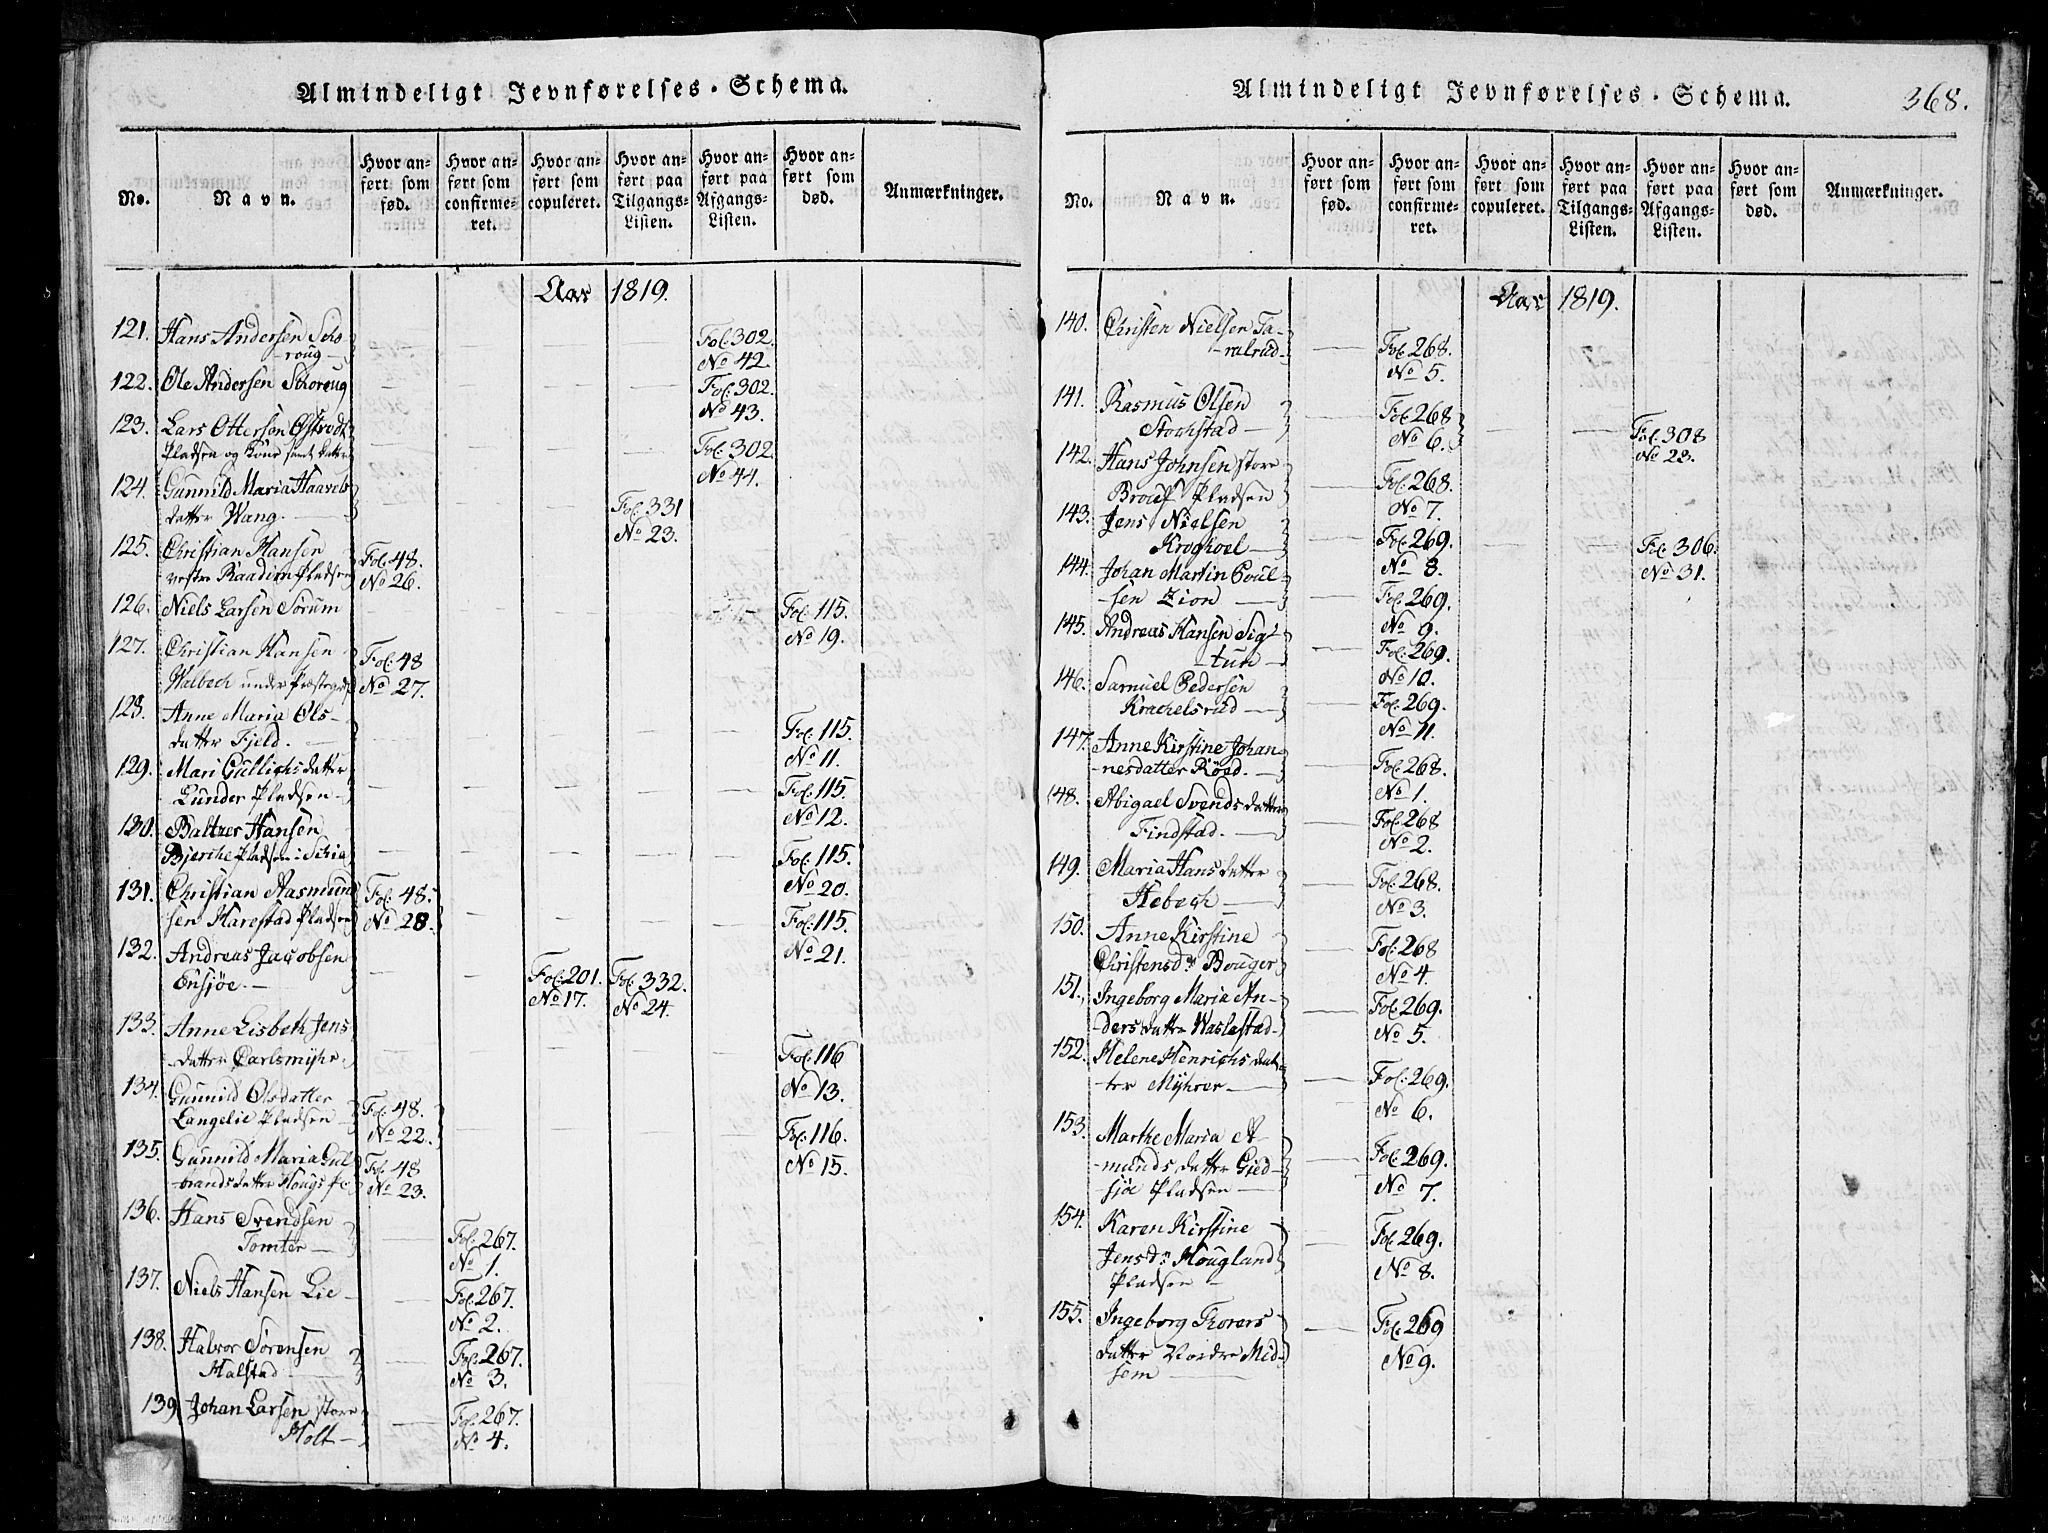 Almindeligt Jevnførelses-Schema.
No.
Navn.
Hvor anført som fød.
Hvor anført som confirmeret.
Hvor anført som copuleret.
Hvor anført paa Tilgangs-Listen.
Hvor anført paa Afgangs-Listen.
Hvor anført som død.
Anmærkninger.
Aar 1819.
121. Hans Andersen Scho
-roug- Fol: 302.
No 42.
122. Ole Andersen Schoroug Fol: 302.
No 43.
123. Lars Ottersen
Pladsen og Kone samt Fol: 302.
No 44.
124. Gunnild Maria Haavels
datter Wang. Fol: 331
No 23.
125. Christian Hansen Fol: 48.
vestre Raadim Pladsen No 26.
126. Niels Larsen Sörum Fol: 115.
No 19.
127. Christian Hansen Fol: 48
Walbech under No 27.
128. Anne Maria Ols-
datter Fjeld. Fol: 115.
No 11.
129. Mari Gullichsdatter
Lunder Pladsen Fol: 115.
No 12.
130. Baltzer Hansen
Bjerche Pladsen i Fol: 115.
No 20.
131. Christian Rasmun Fol: 48.
sen Harestad Pladsen No 28 Fol: 115.
No 21.
132. Andreas Jacobsen
Ensjöe. Fol: 201. Fol: 332.
No 17. No 24.
133. Anne Lisbeth Jens
datter Carlsmyhr Fol: 116
No 13.
134. Gunnild Olsdatter
Langelie Pladsen Fol: 48. No 22. Fol: 116.
No 15.
135. Gunnild Maria Gul Fol: 48
brandsdatter Hougs No 23.
136. Hans Svendsen
Tomter Fol: 267.
No 1.
137. Niels Hansen Lie Fol: 267.
No 2.
138. Halvor Sörensen
Halstad Fol: 267.
No 3.
139. Johan Larsen store
Holt Fol: 267.
No 4.
Almindeligt Jevnførelses-Schema.
368.
No.
Navn.
Hvor anført som fød.
Hvor anført som confirmeret.
Hvor anført som copuleret.
Hvor anført paa Tilgangs-Listen.
Hvor anført paa Afgangs-Listen.
Hvor anført som død.
Anmærkninger.
Aar 1819.
140. Christen Nielsen Ta-
-ralrud Fol: 268.
No 5.
141. Rasmus Olsen
Stochstad Fol: 268 No 6. Fol: 308
No 23.
142. Hans Johnsen store
Pladsen Fol: 268.
No 7.
143. Jens Nielsen
Fol: 269. No 8. Fol: 306.
No 31.
144. Johan Martin Poul-
sen Zion Fol: 269.
No 9.
145. Andreas Hansen Sig-
tun Fol: 269.
No 10.
146. Samuel Pedersen
Krachelsrud Fol: 269.
No 11.
147. Anne Kirstine Johan
nesdatter Röed. Fol: 268.
No 1.
148. Abigael Svendsdatter
Findstad. Fol: 268
No 2.
149. Maria Hansdatter
Hebech Fol: 268.
No 3.
150. Anne Kirstine
Christensdr Bouger Fol: 268
No 4.
151. Ingeborg Maria An-
dersdatter Waslestad Fol: 269.
No 5.
152. Helene Henrichsdat
ter Myhrer Fol: 269.
No 6.
153. Marthe Maria A-
-mundsdatter Gied-
sjöe Pladsen Fol: 269.
No 7.
154. Karen Kirstine
Jensdr Hougland
Pladsen Fol: 269.
No 8.
155. Ingeborg Thorers
datter Nordre Mid-
sem Fol: 269
No 9.